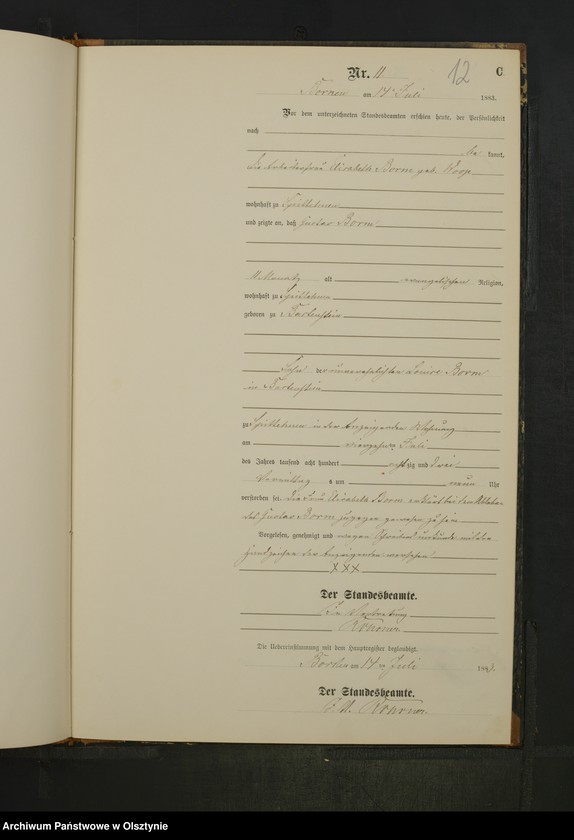 Nr. 11.
12
C
am 14 Juli 1883.
Vor dem unterzeichneten Standesbeamten erschien heute, der Persönlichkeit
nach
be kannt,
die Arbeiterfrau Elisabeth Borm geb.
wohnhaft zu Spittehnen
und zeigte an, daß Gustav Borm
alt evangelischen Religion,
wohnhaft zu Spittehnen
geboren zu Bartenstein
Sohn der unverehelichten Louise Borm
in Bartenstein
zu Spittehnen in der Anzeigenden Wohnung
am vierzehnten Juli
des Jahres tausend acht hundert achtzig und drei
Vormittag s um neun Uhr
verstorben sei. Die Frau Elisabeth Borm
des Gustav Borm zugegen gewesen zu sein
Vorgelesen, genehmigt und wegen mit den
Handzeichen der Anzeigenden versehen
XXX
Der Standesbeamte.
In Vertretung
Die Uebereinstimmung mit dem Hauptregister beglaubigt.
am 14 ten Juli 1883.
Der Standesbeamte.
Archiwum Państwowe w Olsztynie